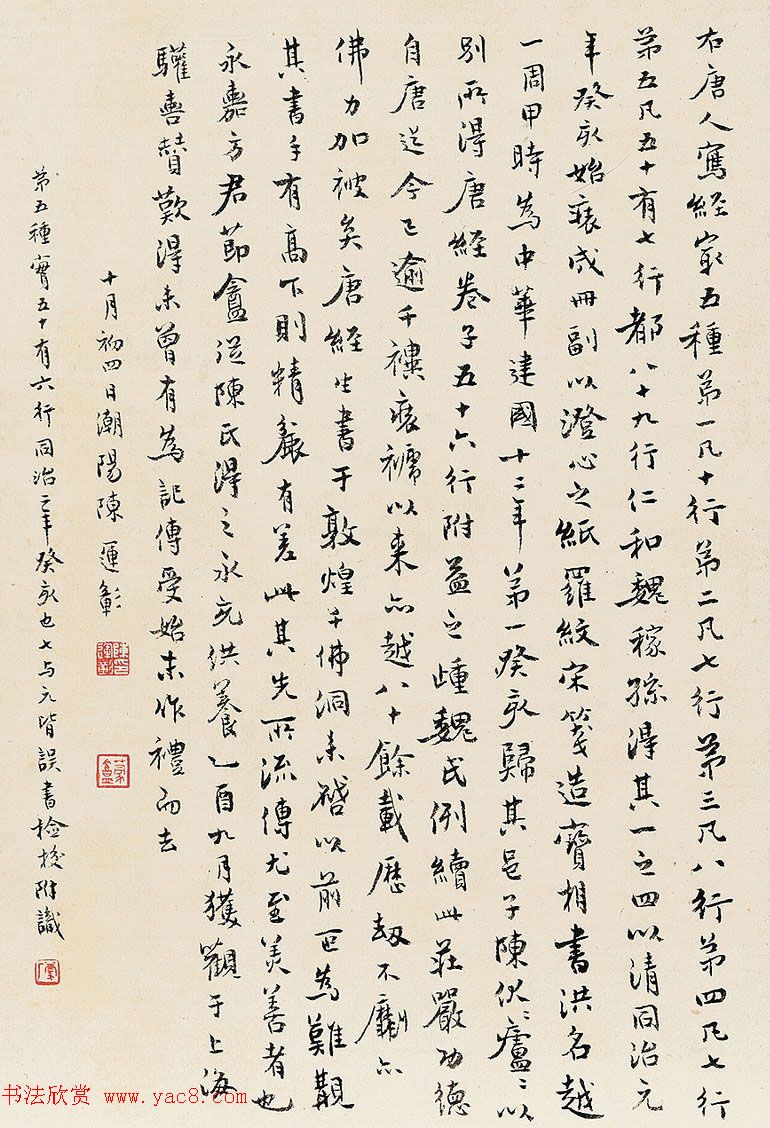 右唐人寫經家五種第一凡十行第二凡七行第三凡八行第四凡七行
第五凡五十有七行都八十九行仁和魏稼孫得其一之四以清同治元
年癸亥始裒成冊副以澄心之紙羅紋宋箋造寶相書洪名越
一周甲時為中華建國十二年第一癸亥歸其邑子陳伏廬二以
別所得唐經卷子五十六行附益之踵魏氏例續此莊嚴功德
自唐迄今已逾千禩裒襦以來亦越八十餘載歷劫不劘亦
佛力加被矣唐經生書于敦煌千佛洞未啓以前叵為難覯
其書手有高下則精麤有差此其先所流傳尤至美善者也
永嘉方君節盦從陳氏得之永充供養乙酉九月獲觀于上海
驩喜贊歎得未曾有為記傳受始末作禮而去
十月初四日潮陽陳運彰
第五種實五十有六行同治二年癸亥也七与元皆誤書檢校附識
书法欣赏 www.yac8.com